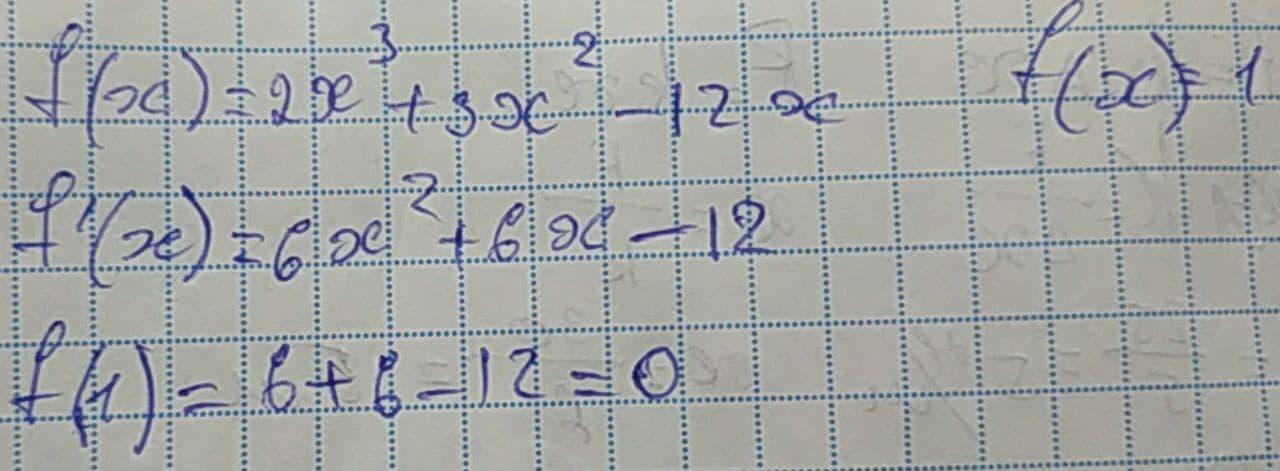 f(x)=2x³+3x²-12x f(x)=1
f'(x)=6x²+6x-12
f(1)=6+6-12=0